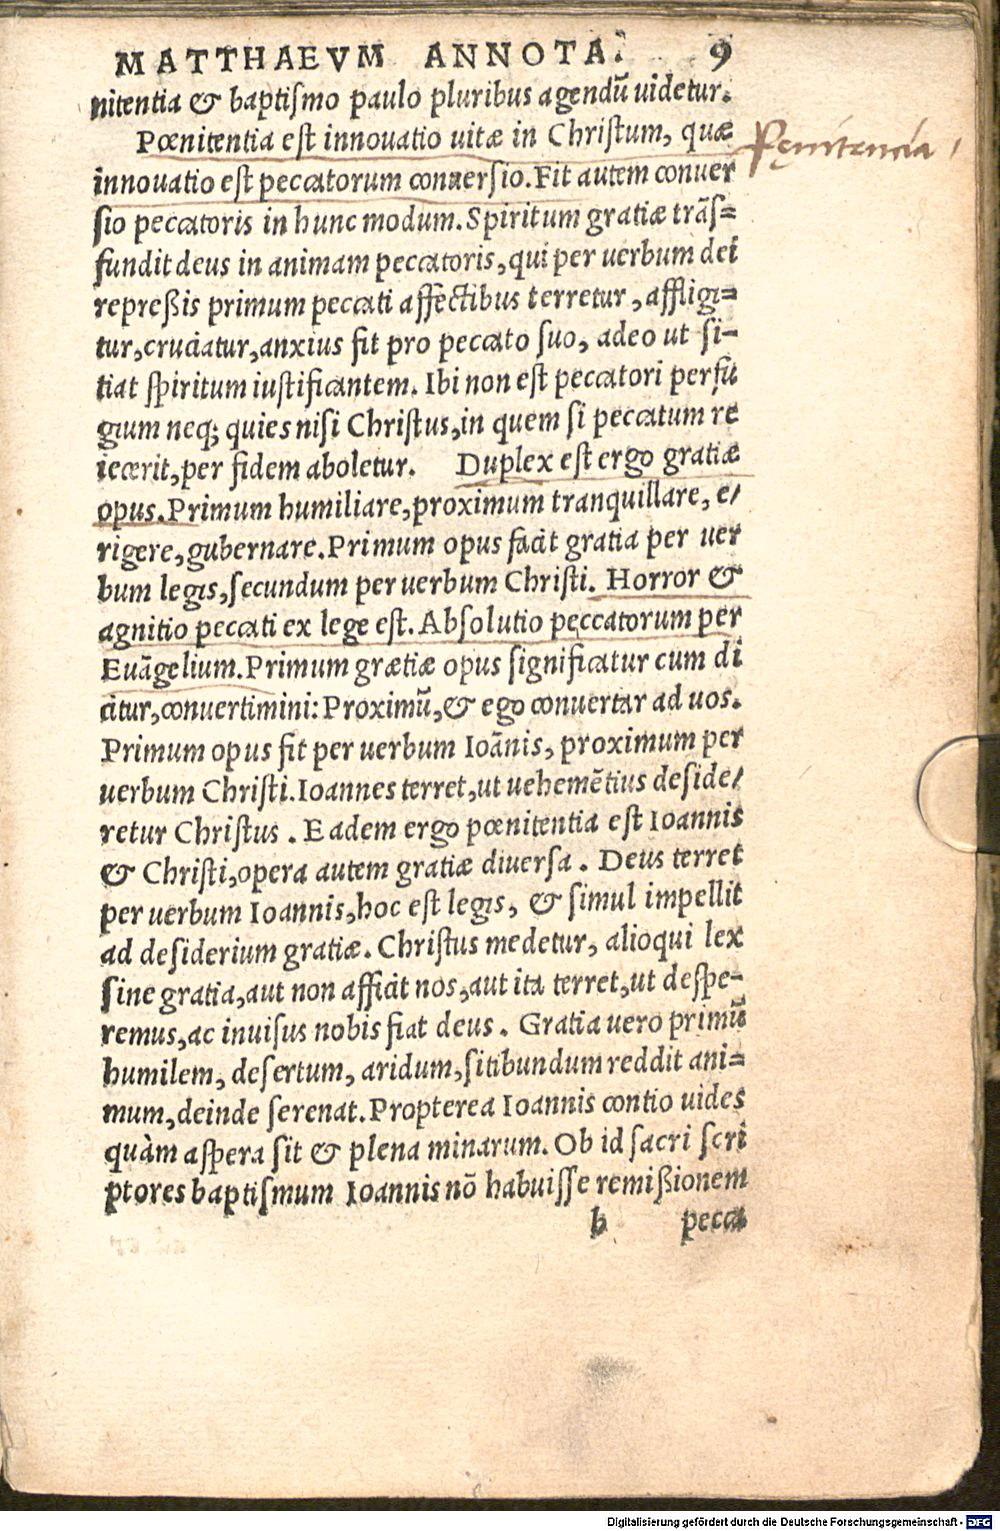 MATTHAEVM ANNOTA. 9
nitentia & baptiſmo paulo pluribus agendũ uidetur.
Pœnitentia eſt innouatio uitæ in Chriſtum, quæ
Pęnitencia
innouatio eſt peccatorum conuerſio. Fit autem conuer
ſio peccatoris in hunc modum. Spiritum gratiæ trãſ=
fundit deus in animam peccatoris, qui per uerbum dei
repreßis primum peccati affectibus terretur, affligi=
tur, cruciatur, anxius fit pro peccato ſuo, adeo ut ſi-
tiat ſpiritum iuſtificantem. Ibi non eſt peccatori perfu
gium neq; quies niſi Chriſtus, in quem ſi peccatum re
iecerit, per fidem aboletur. Duplex eſt ergo gratiæ
opus. Primum humiliare, proximum tranquillare, e/
rigere, gubernare. Primum opus facit gratia per uer
bum legis, ſecundum per uerbum Chriſti. Horror &
agnitio peccati ex lege eſt. Abſolutio peccatorum per
Euãgelium. Primum grætiæ opus ſignificatur cum di
citur, conuertimini: Proximũ, & ego conuertar ad uos.
Primum opus fit per uerbum Ioãnis, proximum per
uerbum Chriſti. Ioannes terret, ut uehemẽtius deſide/
retur Chriſtus. Eadem ergo pœnitentia eſt Ioannis
& Chriſti, opera autem gratiæ diuerſa. Deus terret
per uerbum Ioannis, hoc eſt legis, & ſimul impellit
ad deſiderium gratiæ. Chriſtus medetur, alioqui lex
ſine gratia, aut non afficit nos, aut ita terret, ut deſpe-
remus, ac inuiſus nobis fiat deus. Gratia uero primũ
humilem, deſertum, aridum, ſitibundum reddit ani=
mum, deinde ſerenat. Propterea Ioannis contio uides
quàm aſpera ſit & plena minarum. Ob id ſacri ſcri
ptores baptiſmum Ioannis nõ habuiſſe remißionem
b pecca
Digitalisierung gefördert durch die Deutsche Forschungsgemeinschaft - DFG